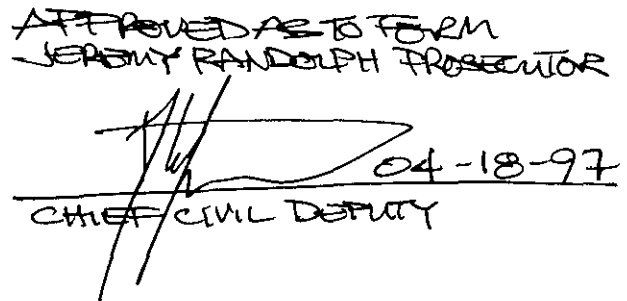 APPROVED AS TO FORM
JEREMY RANDOLPH PROSECUTOR
04-18-97
CHIEF CIVIL DEPUTY